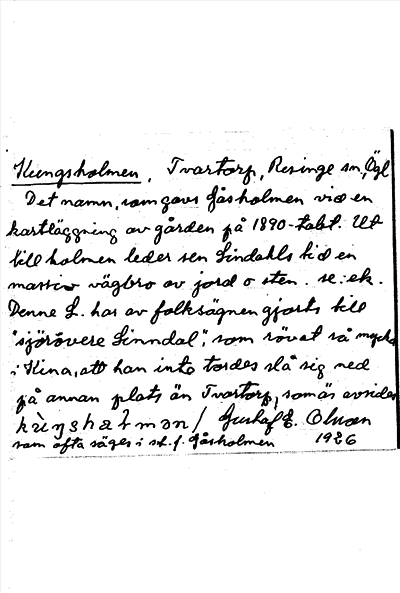 Kungsholmen, Tvartorp, Risinge sn, Ögl
Det namn, som gavs Gåsholmen vid en
kartläggning av gården på 1890-talet. Ut
till holmen leder sen Lindahls tid en
massiv vägbro av jord o sten. se: ek.
Denne L. har av folksägnen gjorts till
"sjörövere Linndal", som rövat så mycke
i Kina, att han inte tordes slå sig ned
på annan plats än Tvartorp, som är avsides
kùŋshàɫmən/ Gustaf E. Olsson
som ofta säges i st. f. Gåsholmen 1926